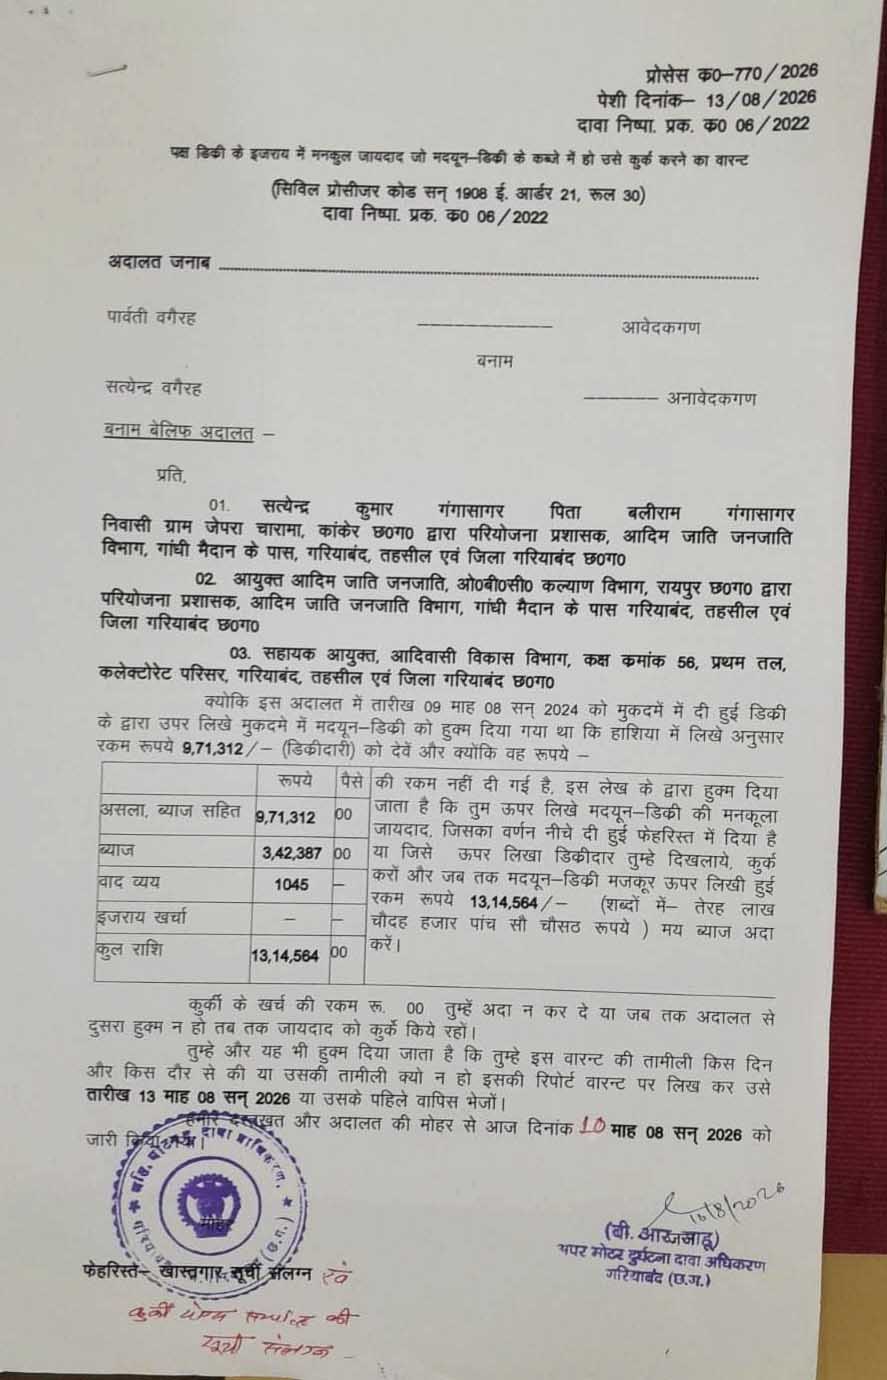 प्रोसेस क0–770/2026
पेशी दिनांक– 13/08/2026
दावा निष्पा. प्रक. क0 06/2022
पक्ष डिकी के इजराय में मनकुल जायदाद जो मदयून–डिकी के कब्जे में हो उसे कुर्क करने का वारन्ट
(सिविल प्रोसीजर कोड सन् 1908 ई. आर्डर 21, रूल 30)
दावा निष्पा. प्रक. क0 06/2022
अदालत जनाब
पार्वती वगैरह ––––––––––– आवेदकगण
बनाम
सत्येन्द्र वगैरह –––––– अनावेदकगण
बनाम बेलिफ अदालत –
प्रति,
01. सत्येन्द्र कुमार गंगासागर पिता बलीराम गंगासागर
निवासी ग्राम जेपरा चारामा, कांकेर छ0ग0 द्वारा परियोजना प्रशासक, आदिम जाति जनजाति
विभाग, गांधी मैदान के पास, गरियाबंद, तहसील एवं जिला गरियाबंद छ0ग0
02. आयुक्त आदिम जाति जनजाति, ओ0बी0सी0 कल्याण विभाग, रायपुर छ0ग0 द्वारा
परियोजना प्रशासक, आदिम जाति जनजाति विभाग, गांधी मैदान के पास गरियाबंद, तहसील एवं
जिला गरियाबंद छ0ग0
03. सहायक आयुक्त, आदिवासी विकास विभाग, कक्ष कमांक 56, प्रथम तल,
कलेक्टोरेट परिसर, गरियाबंद, तहसील एवं जिला गरियाबंद छ0ग0
क्योकि इस अदालत में तारीख 09 माह 08 सन् 2024 को मुकदमें में दी हुई डिकी
के द्वारा उपर लिखे मुकदमे में मदयून–डिकी को हुक्म दिया गया था कि हाशिया में लिखे अनुसार
रकम रूपये 9,71,312/– (डिकीदारी) को देवें और क्योंकि वह रूपये –
रूपये पैसे
असला, ब्याज सहित 9,71,312 00
ब्याज 3,42,387 00
वाद व्यय 1045 –
इजराय खर्चा – –
कुल राशि 13,14,564 00
की रकम नहीं दी गई है, इस लेख के द्वारा हुक्म दिया
जाता है कि तुम ऊपर लिखे मदयून–डिकी की मनकूला
जायदाद, जिसका वर्णन नीचे दी हुई फेहरिस्त में दिया है
या जिसे ऊपर लिखा डिकीदार तुम्हे दिखलाये, कुर्क
करों और जब तक मदयून–डिकी मजकूर ऊपर लिखी हुई
रकम रूपये 13,14,564/– (शब्दों में– तेरह लाख
चौदह हजार पांच सौ चौसठ रूपये ) मय ब्याज अदा
करें।
कुर्की के खर्च की रकम रू. 00 तुम्हें अदा न कर दे या जब तक अदालत से
दुसरा हुक्म न हो तब तक जायदाद को कुर्के किये रहों।
तुम्हे और यह भी हुक्म दिया जाता है कि तुम्हे इस वारन्ट की तामीली किस दिन
और किस दौर से की या उसकी तामीली क्यो न हो इसकी रिपोर्ट वारन्ट पर लिख कर उसे
तारीख 13 माह 08 सन् 2026 या उसके पहिले वापिस भेजों।
हमारे दस्तखत और अदालत की मोहर से आज दिनांक 10 माह 08 सन् 2026 को
जारी किया गया।
मोहर
10/8/2026
(बी. आर. साहू)
अपर मोटर दुर्घटना दावा अधिकरण
गरियाबंद (छ.ग.)
फेहरिस्ते– खास्तगार सूची संलग्न एवं
कुर्की योग्य सम्पत्ति की
सूची संलग्न –